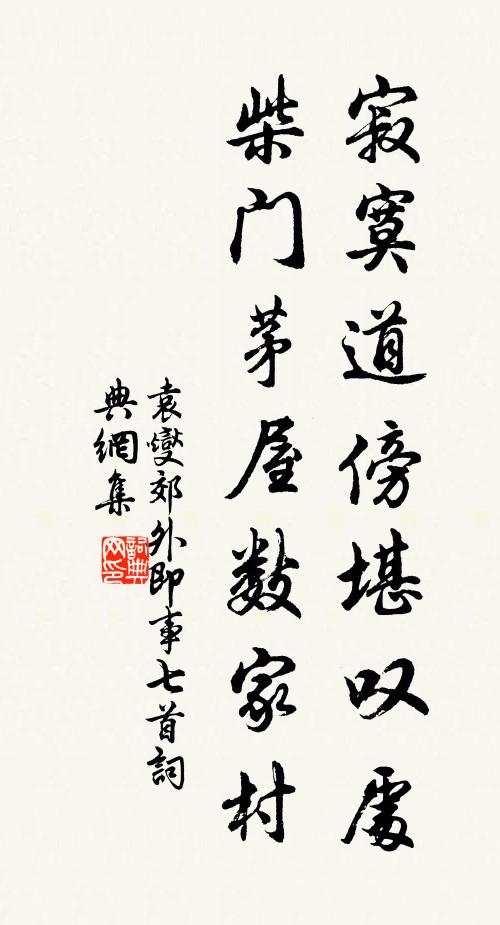 寂寞道傍堪叹處
柴门茅屋数家村
袁燮郊外即事七首詞
典網集
詞典網印